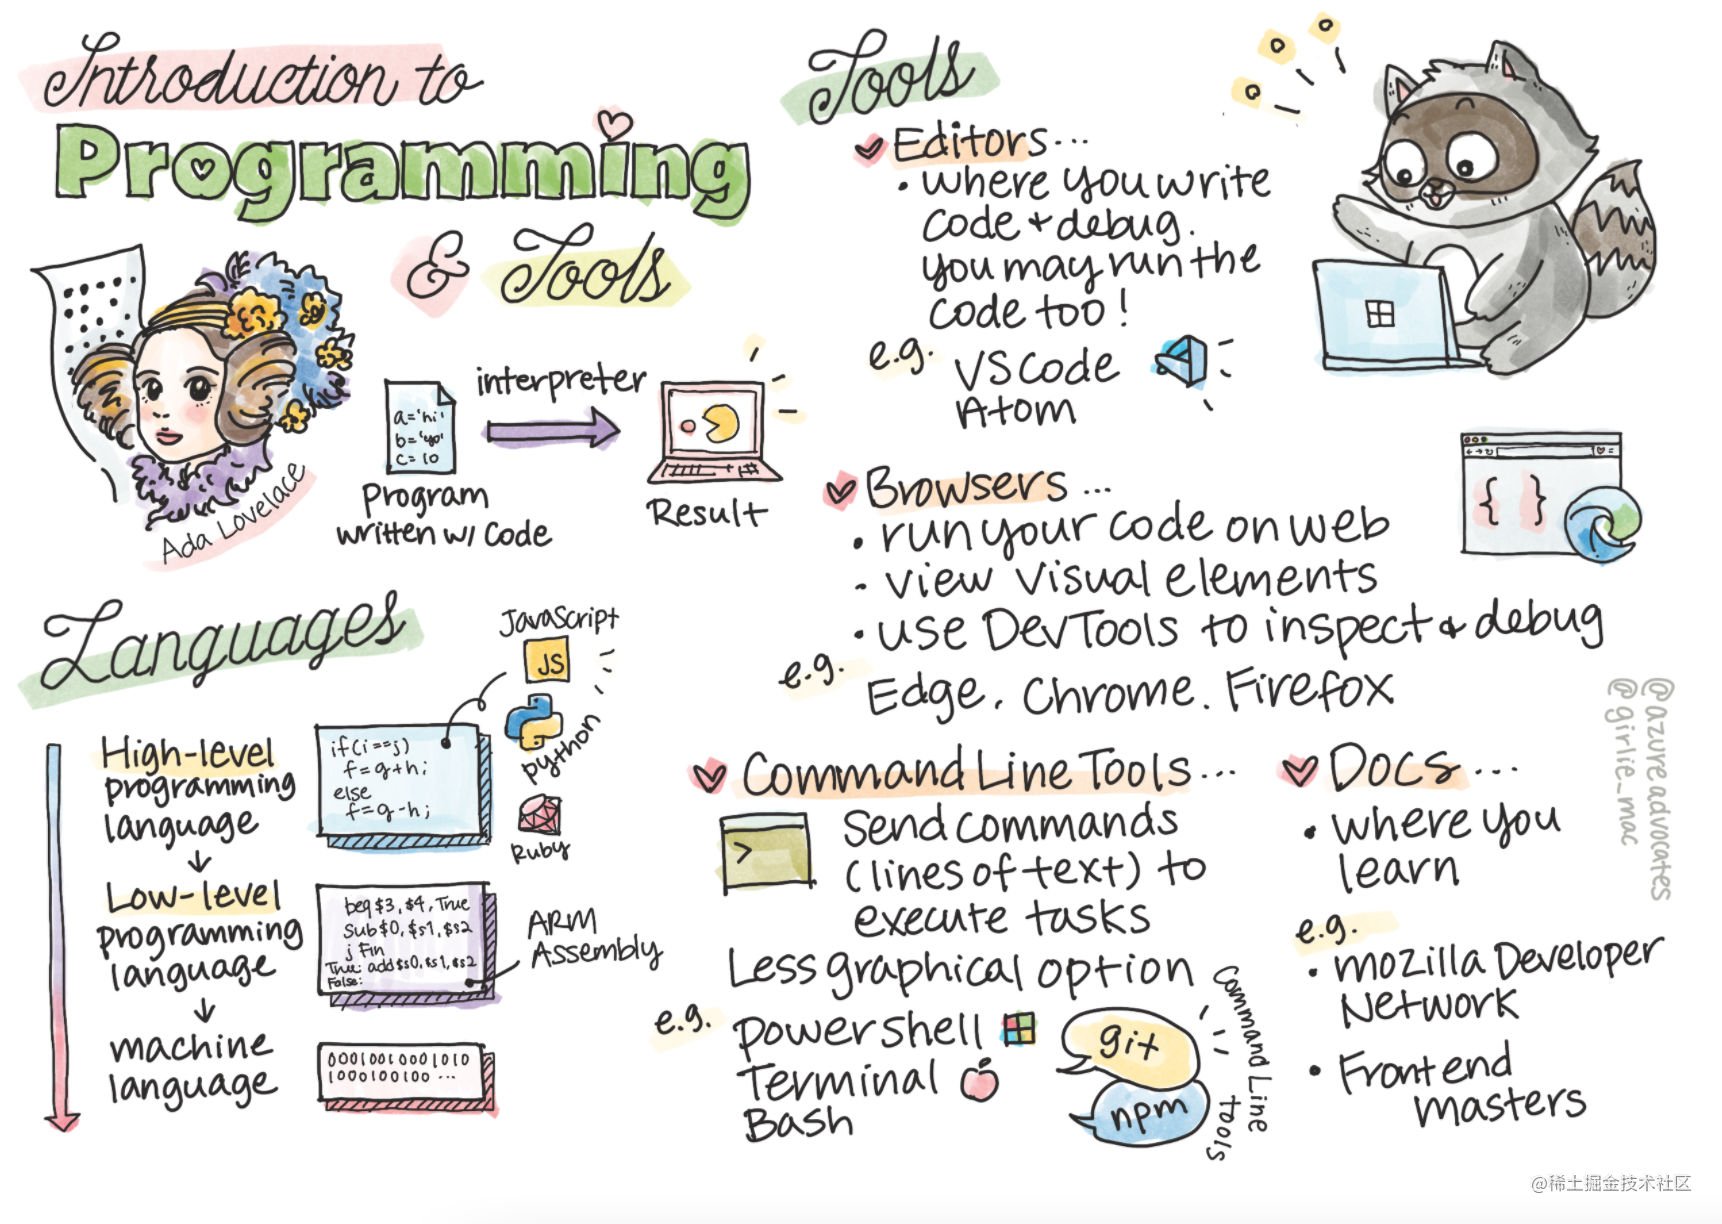 Introduction to
Programming
& Tools
Ada Lovelace
a='hi'
b='yo'
c=10
Program
written w/ Code
interpreter
Result
Languages
High-level
programming
language
if(i==j)
f=g+h;
else
f=g-h;
JavaScript
JS
python
Ruby
Low-level
programming
language
beq $3, $4, True
Sub $0, $s1, $s2
j Fin
True: add $s0, $s1, $s2
False:
ARM
Assembly
machine
language
00010010001010
1000100100 ...
Tools
Editors...
• where you write
code + debug.
you may run the
code too!
e.g. VS Code
Atom
Browsers ...
• run your code on web
• view visual elements
• use DevTools to inspect & debug
e.g. Edge, Chrome. Firefox
Command Line Tools ...
>
Send commands
(lines of text) to
execute tasks
Less graphical option
e.g. powershell
Terminal
Bash
git
npm
Command Line Tools
Docs ...
• where you
learn
e.g.
• mozilla Developer
Network
• Frontend
masters
{ }
@azureadvocates
@girlie_mac
@稀土掘金技术社区